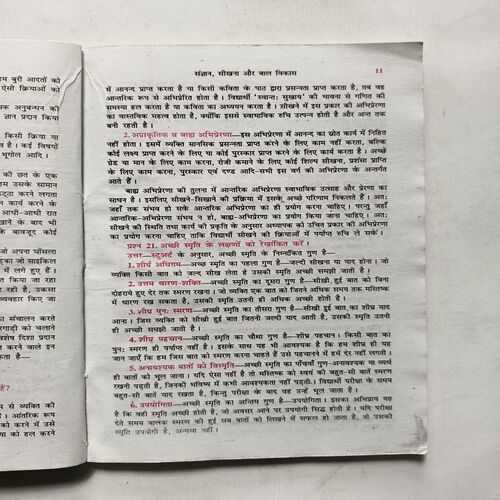 म बुरी आदतों को
ऐसी क्रियाओं को
क अनुबन्धन की
ज्ञान प्रदान किया
किसी क्रिया या
है। कई विषयों
भूगोल आदि।
की छत के एक
हम उसके सामान
ट्ठा करने लगता
न कार्य करने के
आधी-आधी रात
खाने के बाद भी
के बावजूद कोई
अपना घोंसला
जो साइकिल
में लगे हुए हैं।
किया जा रहा
र रही है, उकसा
व्यवहार किए जा
संचालन करते
गाड़ी को चलाने
शेष दिशा प्रदान
करने वाले इन
कता है—
है?
से व्यक्ति की
। आंतरिक रूप
को करने में उसे
या को हल करने
संज्ञान, सीखना और बाल विकास 11
में आनन्द प्राप्त करता है या किसी कविता के पाठ द्वारा प्रसन्नता प्राप्त करता है, तब वह
आन्तरिक रूप से अभिप्रेरित होता है। विद्यार्थी 'स्वान्तः सुखाय' की भावना से गणित की
समस्या हल करता है या कविता का अध्ययन करता है। सीखने में इस प्रकार की अभिप्रेरणा
का वास्तविक महत्व होता है, क्योंकि इससे स्वाभाविक रुचि उत्पन्न होती है और अन्त तक
बनी रहती है।
2. अप्राकृतिक व बाह्य अभिप्रेरणा—इस अभिप्रेरणा में आनन्द का स्रोत कार्य में निहित
नहीं होता। इसमें व्यक्ति मानसिक प्रसन्नता प्राप्त करने के लिए काम नहीं करता, बल्कि
कोई लक्ष्य प्राप्त करने के लिए या कोई पुरस्कार प्राप्त करने के लिए कार्य करता है। अच्छे
ग्रेड या मान के लिए काम करना, रोजी कमाने के लिए कोई शिल्प सीखना, प्रशंसा प्राप्ति
के लिए काम करना, पुरस्कार एवं दण्ड आदि-सभी इस वर्ग की अभिप्रेरणा के अन्तर्गत
आते हैं।
बाह्य अभिप्रेरणा की तुलना में आन्तरिक अभिप्रेरणा स्वाभाविक उत्साह और प्रेरणा का
साधन है। इसलिए सीखने-सिखाने की प्रक्रिया में इसके अच्छे परिणाम निकलते हैं। अतः
जहाँ तक संभव हो सके आन्तरिक अभिप्रेरणा का ही प्रयोग करना चाहिए। परन्तु जहाँ
आन्तरिक-अभिप्रेरणा संभव न हो, बाह्य-अभिप्रेरणा का प्रयोग किया जाना चाहिए। अतः
सीखने की स्थिति तथा कार्य की प्रकृति के अनुसार अध्यापक को उचित प्रकार की अभिप्रेरणा
का प्रयोग करना चाहिए ताकि विद्यार्थी सीखने की क्रियाओं में पर्याप्त रुचि ले सके।
प्रश्न 21. अच्छी स्मृति के लक्षणों को रेखांकित करें।
उत्तर—स्टूअर्ट के अनुसार, अच्छी स्मृति के निम्नांकित गुण हैं—
1. शीर्घ अधिगम—अच्छी स्मृति का पहला गुण है—जल्दी सीखना या याद होना। जो
व्यक्ति किसी बात को जल्द सीख लेता है उसकी स्मृति अच्छी समझी जाती है।
2. उत्तम धारण-शक्ति—अच्छी स्मृति का दूसरा गुण है—सीखी हुई बात को बिना
दोहराये हुए देर तक स्मरण रखना। जो व्यक्ति एक बात को जितने अधिक समय तक मस्तिष्क
में धारण रख सकता है, उसकी स्मृति उतनी ही अधिक अच्छी होती है।
3. शीघ्र पुनः स्मरण—अच्छी स्मृति का तीसरा गुण है—सीखी हुई बात का शीघ्र याद
आना। जिस व्यक्ति को सीखी हुई बात जितनी जल्दी याद आती है, उसकी स्मृति उतनी
ही अच्छी समझी जाती है।
4. शीघ्र पहचान—अच्छी स्मृति का चौथा गुण है—शीघ्र पहचान। किसी बात का
स्मरण ही पर्याप्त नहीं है। इसके साथ यह भी आवश्यक है कि हम शीघ्र ही यह
जान जाएँ कि हम जिस बात को स्मरण करना चाहते हैं उसे पहचानने में हमें देर नहीं लगती।
5. अनावश्यक बातों की विस्मृति—अच्छी स्मृति का पाँचवाँ गुण-अनावश्यक या व्यर्थ
ही बातों को भूल जाना। यदि ऐसा नहीं है तो मस्तिष्क को स्वयं की बहुत-सी बातें स्मरण
रखनी पड़ती है, जिनकी भविष्य में कभी आवश्यकता नहीं पड़ती। विद्यार्थी परीक्षा के समय
बहुत-सी बातें याद रखता है, किन्तु परीक्षा के बाद वह उन्हें भूल जाता है।
6. उपयोगिता—अच्छी स्मृति का अन्तिम गुण है—उपयोगिता। इसका अभिप्राय यह
है कि वही स्मृति अच्छी होती है, जो अवसर आने पर उपयोगी सिद्ध होती है। यदि परीक्षा
देते समय बालक स्मरण की हुई सब बातों को लिखने में सफल हो जाता है, तो उसकी
स्मृति उपयोगी है, अन्यथा नहीं।